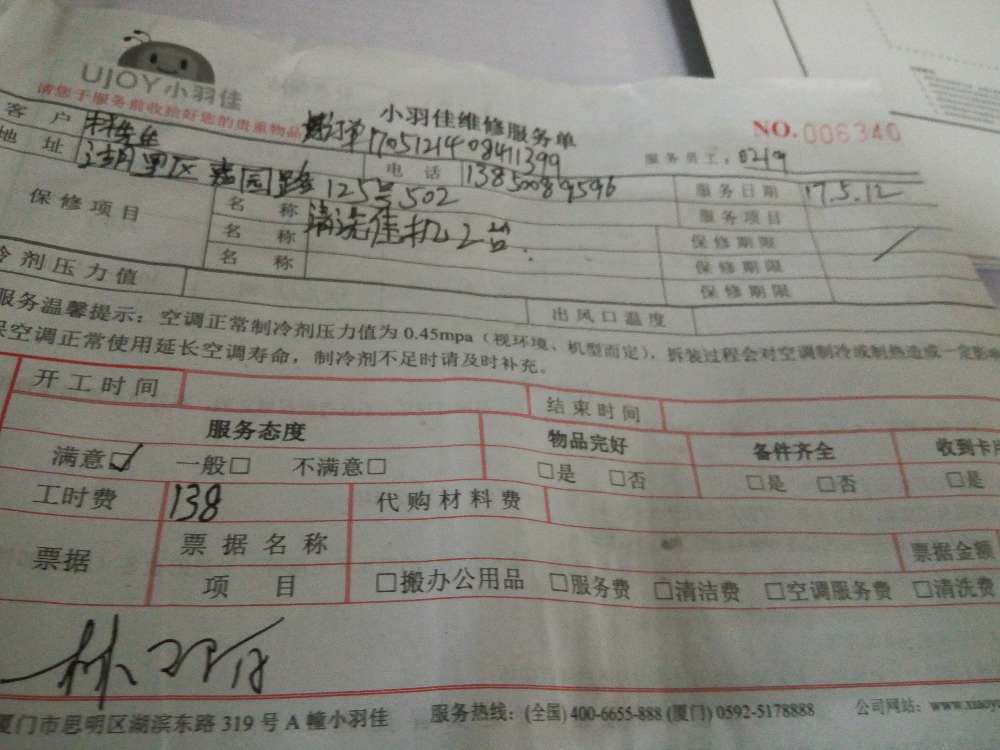 UJOY小羽佳
请您于服务前收拾好您的贵重物品
小羽佳维修服务单
NO.006340
客户 林先生 订单1705121408411399 服务员工:0219
地址 湖里区 园路125号502 电话 13850089596 服务日期 17.5.12
保修项目 名称 清洗佳机2台. 服务项目
名称 保修期限
名称 保修期限
保修期限
冷剂压力值 出风口温度
服务温馨提示:空调正常制冷剂压力值为0.45mpa(视环境、机型而定),拆装过程会对空调制冷或制热造成一定影响
保空调正常使用延长空调寿命,制冷剂不足时请及时补充。
开工时间 结束时间
服务态度 物品完好 备件齐全 收到卡片
满意☑ 一般□ 不满意□ □是 □否 □是 □否 □是
工时费 138 代购材料费
票据 票据名称 票据金额
项目 □搬办公用品 □服务费 □清洁费 □空调服务费 □清洗费
厦门市思明区湖滨东路319号A幢小羽佳 服务热线:(全国)400-6655-888(厦门)0592-5178888 公司网站:www.xiaoyu